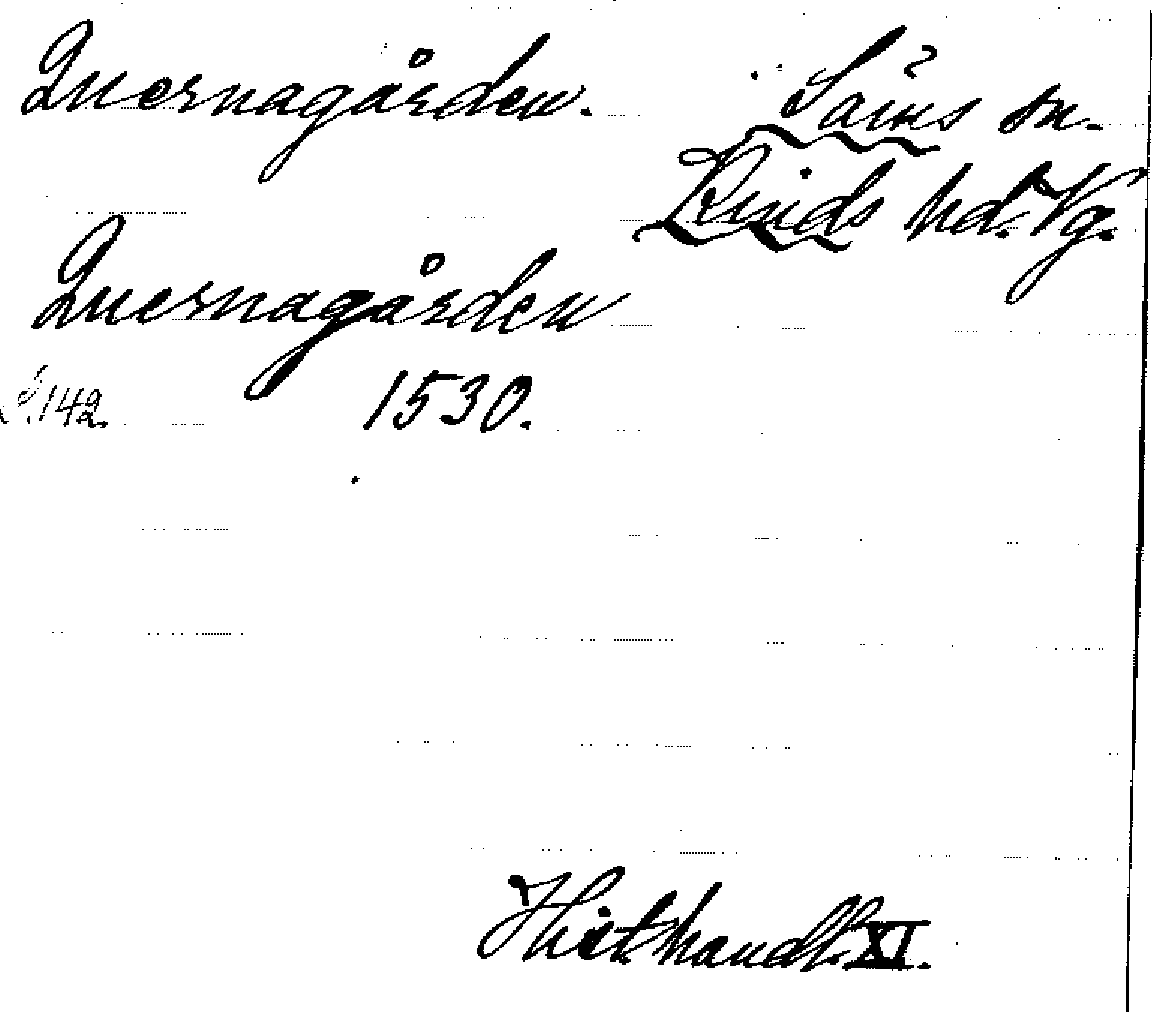 Quernagården. Säms sn.
Kinds hd. Vg.
Quernagården
S.142. 1530.
Hist. handl. XI.